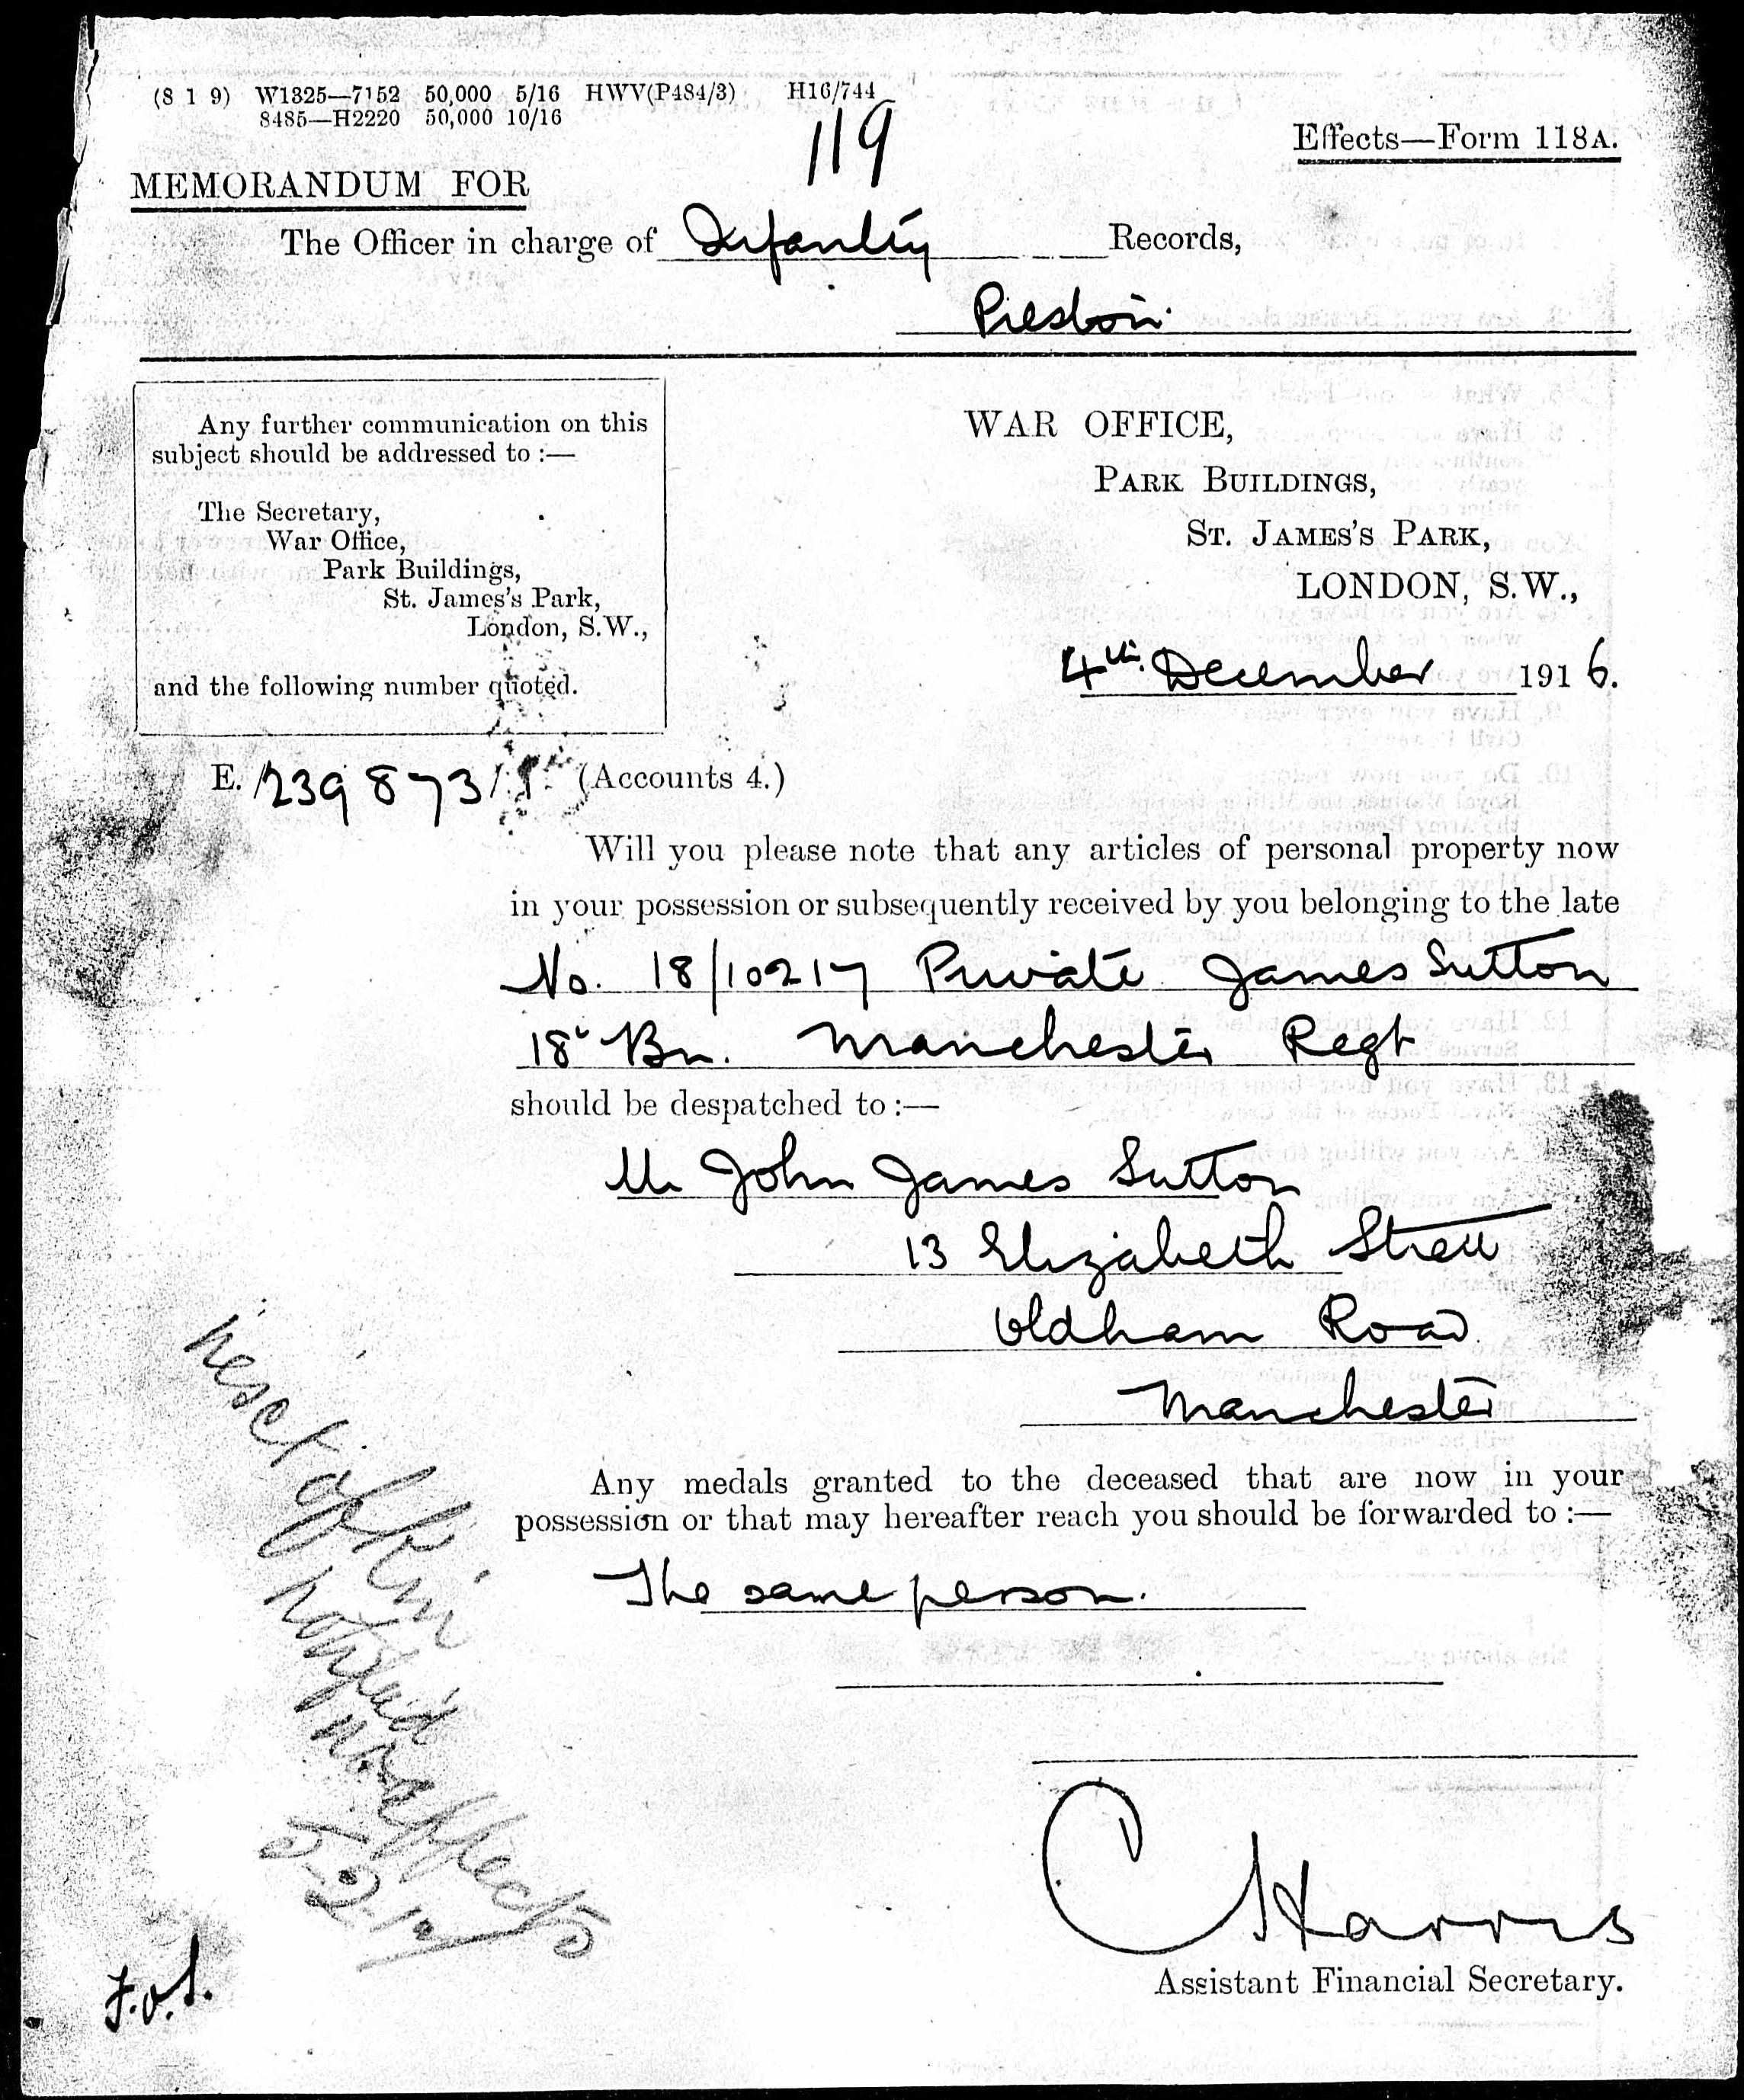 (8 1 9) W1325—7152 50,000 5/16 HWV(P484/3) H16/744
8485—H2220 50,000 10/16
119
Effects—Form 118A.
MEMORANDUM FOR
The Officer in charge of Infantry Records,
Preston.
Any further communication on this
subject should be addressed to :—
The Secretary,
War Office,
Park Buildings,
St. James's Park,
London, S.W.,
and the following number quoted.
WAR OFFICE,
PARK BUILDINGS,
ST. JAMES'S PARK,
LONDON, S.W.,
4th December 1916.
E. /239873/ (Accounts 4.)
Will you please note that any articles of personal property now
in your possession or subsequently received by you belonging to the late
No. 18/10217 Private James Sutton
18 Bn. Manchester Regt
should be despatched to :—
Mr John James Sutton
13 Elizabeth Street
Oldham Road
Manchester
Any medals granted to the deceased that are now in your
possession or that may hereafter reach you should be forwarded to :—
The same person.
next of kin
notified
no effects
5-2-17
C Harris
Assistant Financial Secretary.